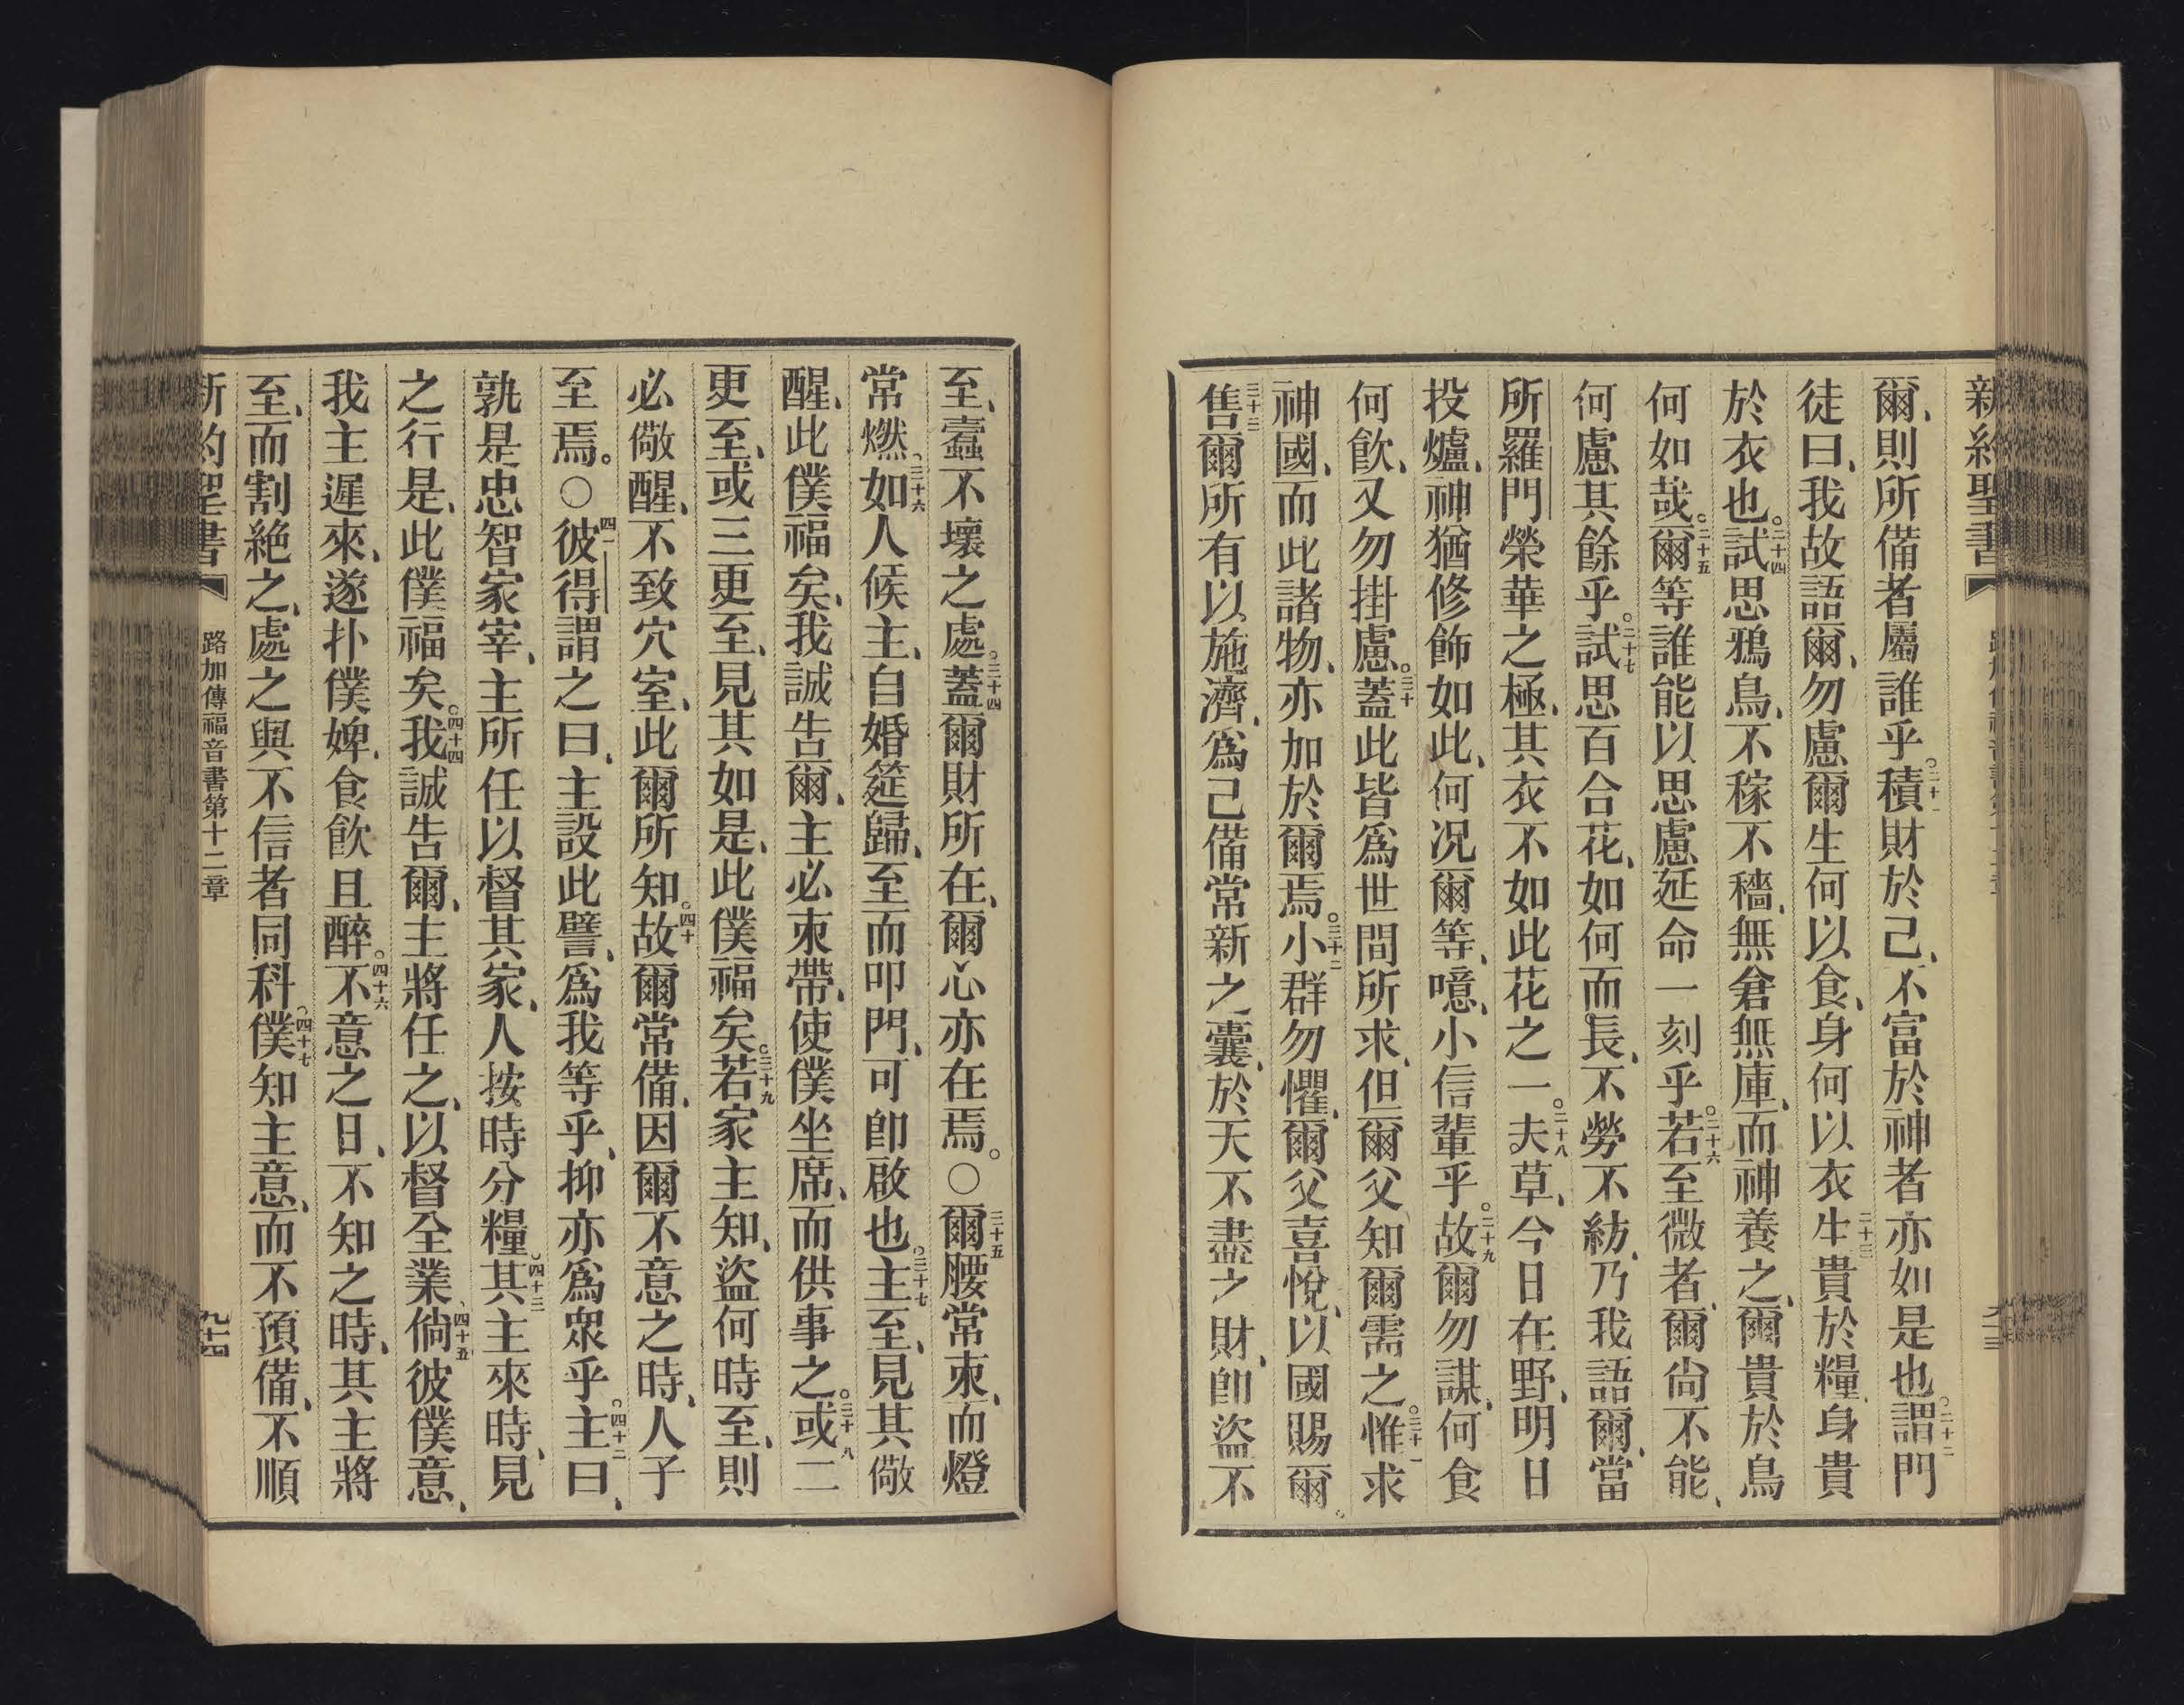 新約聖書
爾、則所備者屬誰乎。二十一積財於己、不富於神者亦如是也。二十二謂門
徒曰、我故語爾、勿慮爾生何以食、身何以衣、二十三生貴於糧、身貴
於衣也。二十四試思鴉鳥、不稼不穡、無倉無庫、而神養之、爾貴於鳥
何如哉。二十五爾等誰能以思慮延命一刻乎。二十六若至微者、爾尙不能、
何慮其餘乎。二十七試思百合花、如何而長、不勞不紡、乃我語爾、當
所羅門榮華之極、其衣不如此花之一。二十八夫草、今日在野、明日
投爐、神猶修飾如此、何況爾等、噫、小信輩乎。二十九故爾勿謀、何食
何飮、又勿掛慮。三十蓋此皆爲世間所求、但爾父知爾需之。三十一惟求
神國、而此諸物、亦加於爾焉。三十二小群勿懼、爾父喜悅、以國賜爾。
三十三售爾所有以施濟、爲己備常新之囊、於天不盡之財、卽盜不
至、蠹不壞之處。三十四蓋爾財所在、爾心亦在焉。○三十五爾腰常束、而燈
常燃。三十六如人候主、自婚筵歸、至而叩門、可卽啟也。三十七主至、見其儆
醒、此僕福矣、我誠告爾、主必束帶、使僕坐席、而供事之。三十八或二
更至、或三更至、見其如是、此僕福矣。三十九若家主知、盜何時至、則
必儆醒、不致穴室、此爾所知。四十故爾常備、因爾不意之時、人子
至焉。○四一彼得謂之曰、主設此譬、爲我等乎、抑亦爲眾乎。四十二主曰、
孰是忠智家宰、主所任以督其家、人按時分糧。四十三其主來時、見
之行是、此僕福矣。四十四我誠告爾、主將任之、以督全業、四十五倘彼僕意、
我主遲來、遂扑僕婢、食飮且醉。四十六不意之日、不知之時、其主將
至、而割絶之、處之與不信者同科。四十七僕知主意、而不預備、不順
新約聖書 路加傳福音書第十二章 九十四